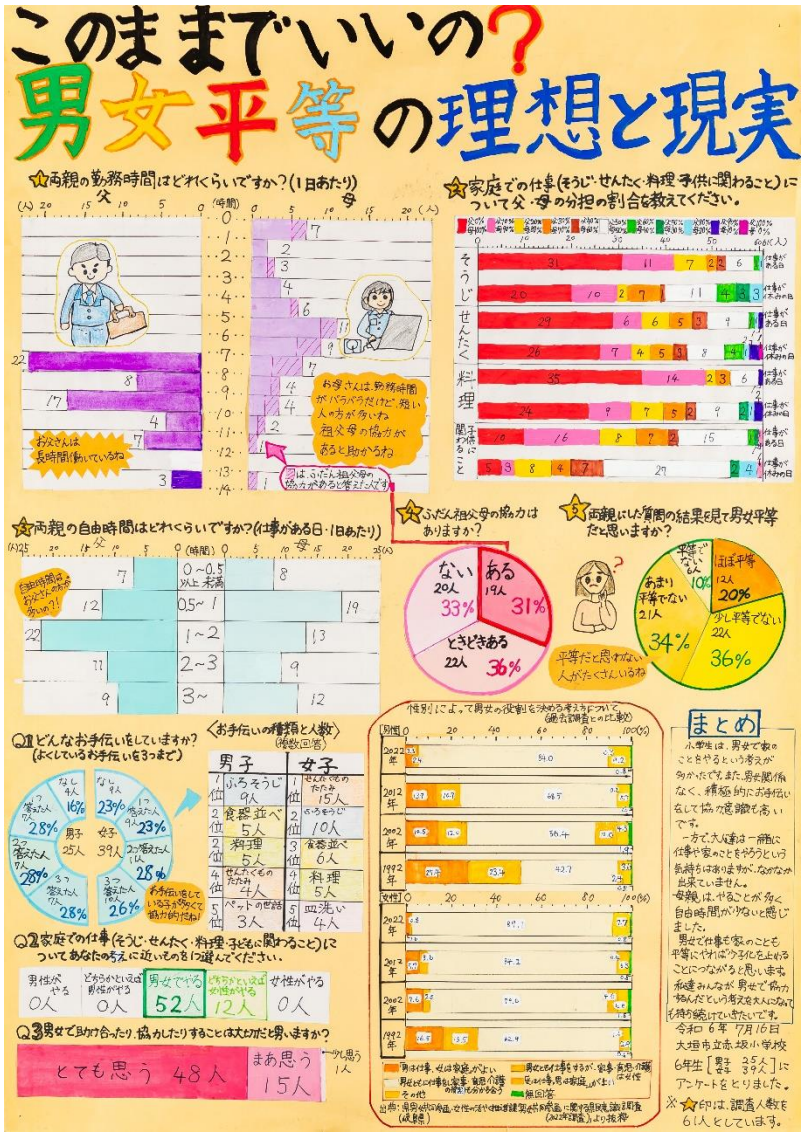 このままでいいの？
男女平等の理想と現実
☆1両親の勤務時間はどれくらいですか？(1日あたり)
父
母
(人) 20 15 10 5 0 (時間) 0 5 10 15 20 (人)
0
1
2
3
4
5
6
7
8
9
10
11
12
13
14
7
2
3
4
6
11
7
4
4
2
1
1
22
8
17
4
7
3
お父さんは
長時間働いているね
お母さんは、勤務時間
がバラバラだけど、短い
人の方が多いね
祖父母の協力が
あると助かるね
は、ふだん祖父母の
協力があると答えた人です
☆2家庭での仕事(そうじ・せんたく・料理・子供に関わること)に
ついて父・母の分担の割合を教えてください。
0 10 20 30 40 50 60
そうじ
31 11 7 2 2 6 1
仕事が
ある日
20 10 2 7 11 4 3 3
仕事が
休みの日
せんたく
29 6 6 5 3 9
仕事が
ある日
26 7 4 5 3 8
仕事が
休みの日
料理
35 14 2 3 6
仕事が
ある日
24 9 7 5 2 9 2
仕事が
休みの日
子供に
関わること
10 16 8 7 2 15
仕事が
ある日
5 3 8 4 7 27 2 4
仕事が
休みの日
☆3両親の自由時間はどれくらいですか？(仕事がある日・1日あたり)
(人)25 20 15 父 10 5 0 (時間) 0 5 10 母 15 20 25(人)
7 0～0.5 8
以上 未満
12 0.5～1 19
22 1～2 13
11 2～3 9
9 3～ 12
自由時間は
お父さんの方が
多いの？！
☆4ふだん祖父母の協力は
ありますか？
ある
19人
31%
ときどきある
22人
36%
ない
20人
33%
☆5両親にした質問の結果を見て男女平等
だと思いますか？
ほぼ平等
12人
20%
少し平等でない
22人
36%
あまり
平等でない
21人
34%
平等で
ない
6人
10%
?
平等だと思わない
人がたくさんいるね
Q1どんなお手伝いをしていますか？
(よくしているお手伝いを3つまで)
男子
25人
なし
4人
16%
1つ
答えた人
7人
28%
2つ
答えた人
7人
28%
3つ
答えた人
7人
28%
女子
39人
なし
9人
23%
1つ
答えた人
9人
23%
2つ答えた人
11人
28%
3つ
答えた人
10人
26%
お手伝いをして
いる子が多くて
協力的だね！
〈お手伝いの種類と人数〉
(複数回答)
男子 女子
1位 ふろそうじ 9人
1位 せんたくものたたみ 15人
2位 食器並べ 5人
2位 ふろそうじ 10人
2位 料理 5人
3位 食器並べ 6人
4位 せんたくものたたみ 4人
4位 料理 5人
5位 ペットの世話 3人
5位 皿洗い 4人
Q2家庭での仕事(そうじ・せんたく・料理・子どもに関わること)に
ついてあなたの考えに近いものを1つ選んでください。
男性が
やる
0人
どちらかといえば
男性がやる
0人
男女でやる
52人
どちらかといえば
女性がやる
12人
女性がやる
0人
Q3男女で助け合ったり、協力したりすることは大切だと思いますか？
とても思う 48人
まあ思う
15人
少し思う
1人
性別によって男女の役割を決める考え方について
(過去調査との比較)
[男性]
0 20 40 60 80 100(%)
2022年
84.0
2012年
68.5
2002年
10.5 12.4 56.4
1992年
23.4 42.7
[女性]
0 20 40 60 80 100(%)
2022年
2012年
2002年
1992年
13.5 62.9
男は仕事、女は家庭がよい
男女とも仕事をするが、家事・育児・介護は女性
男女ともに仕事をし、家事・育児・介護
の関係も分かち合う
女は仕事、男は家庭がよい
その他
無回答
まとめ
小学生は、男女で家の
ことをやるという考えが
多かったです。また、男女関係
なく、積極的にお手伝い
をして協力意識も高い
です。
一方で、大人達は一緒に
仕事や家のことをやろうという
気持ちはありますが、なかなか
出来ていません。
母親は、やることが多く
自由時間が少ないと感じ
ました。
男女で仕事も家のことも
平等にやれば少子化を止める
ことにつながると思います。
私達みんなが男女で協力
するんだという考えを大人になって
も持ち続けていきたいです。
令和6年 7月16日
大垣市立赤坂小学校
6年生[男子 25人 女子 39人]に
アンケートをとりました。
※☆印は、調査人数を
61人としています。